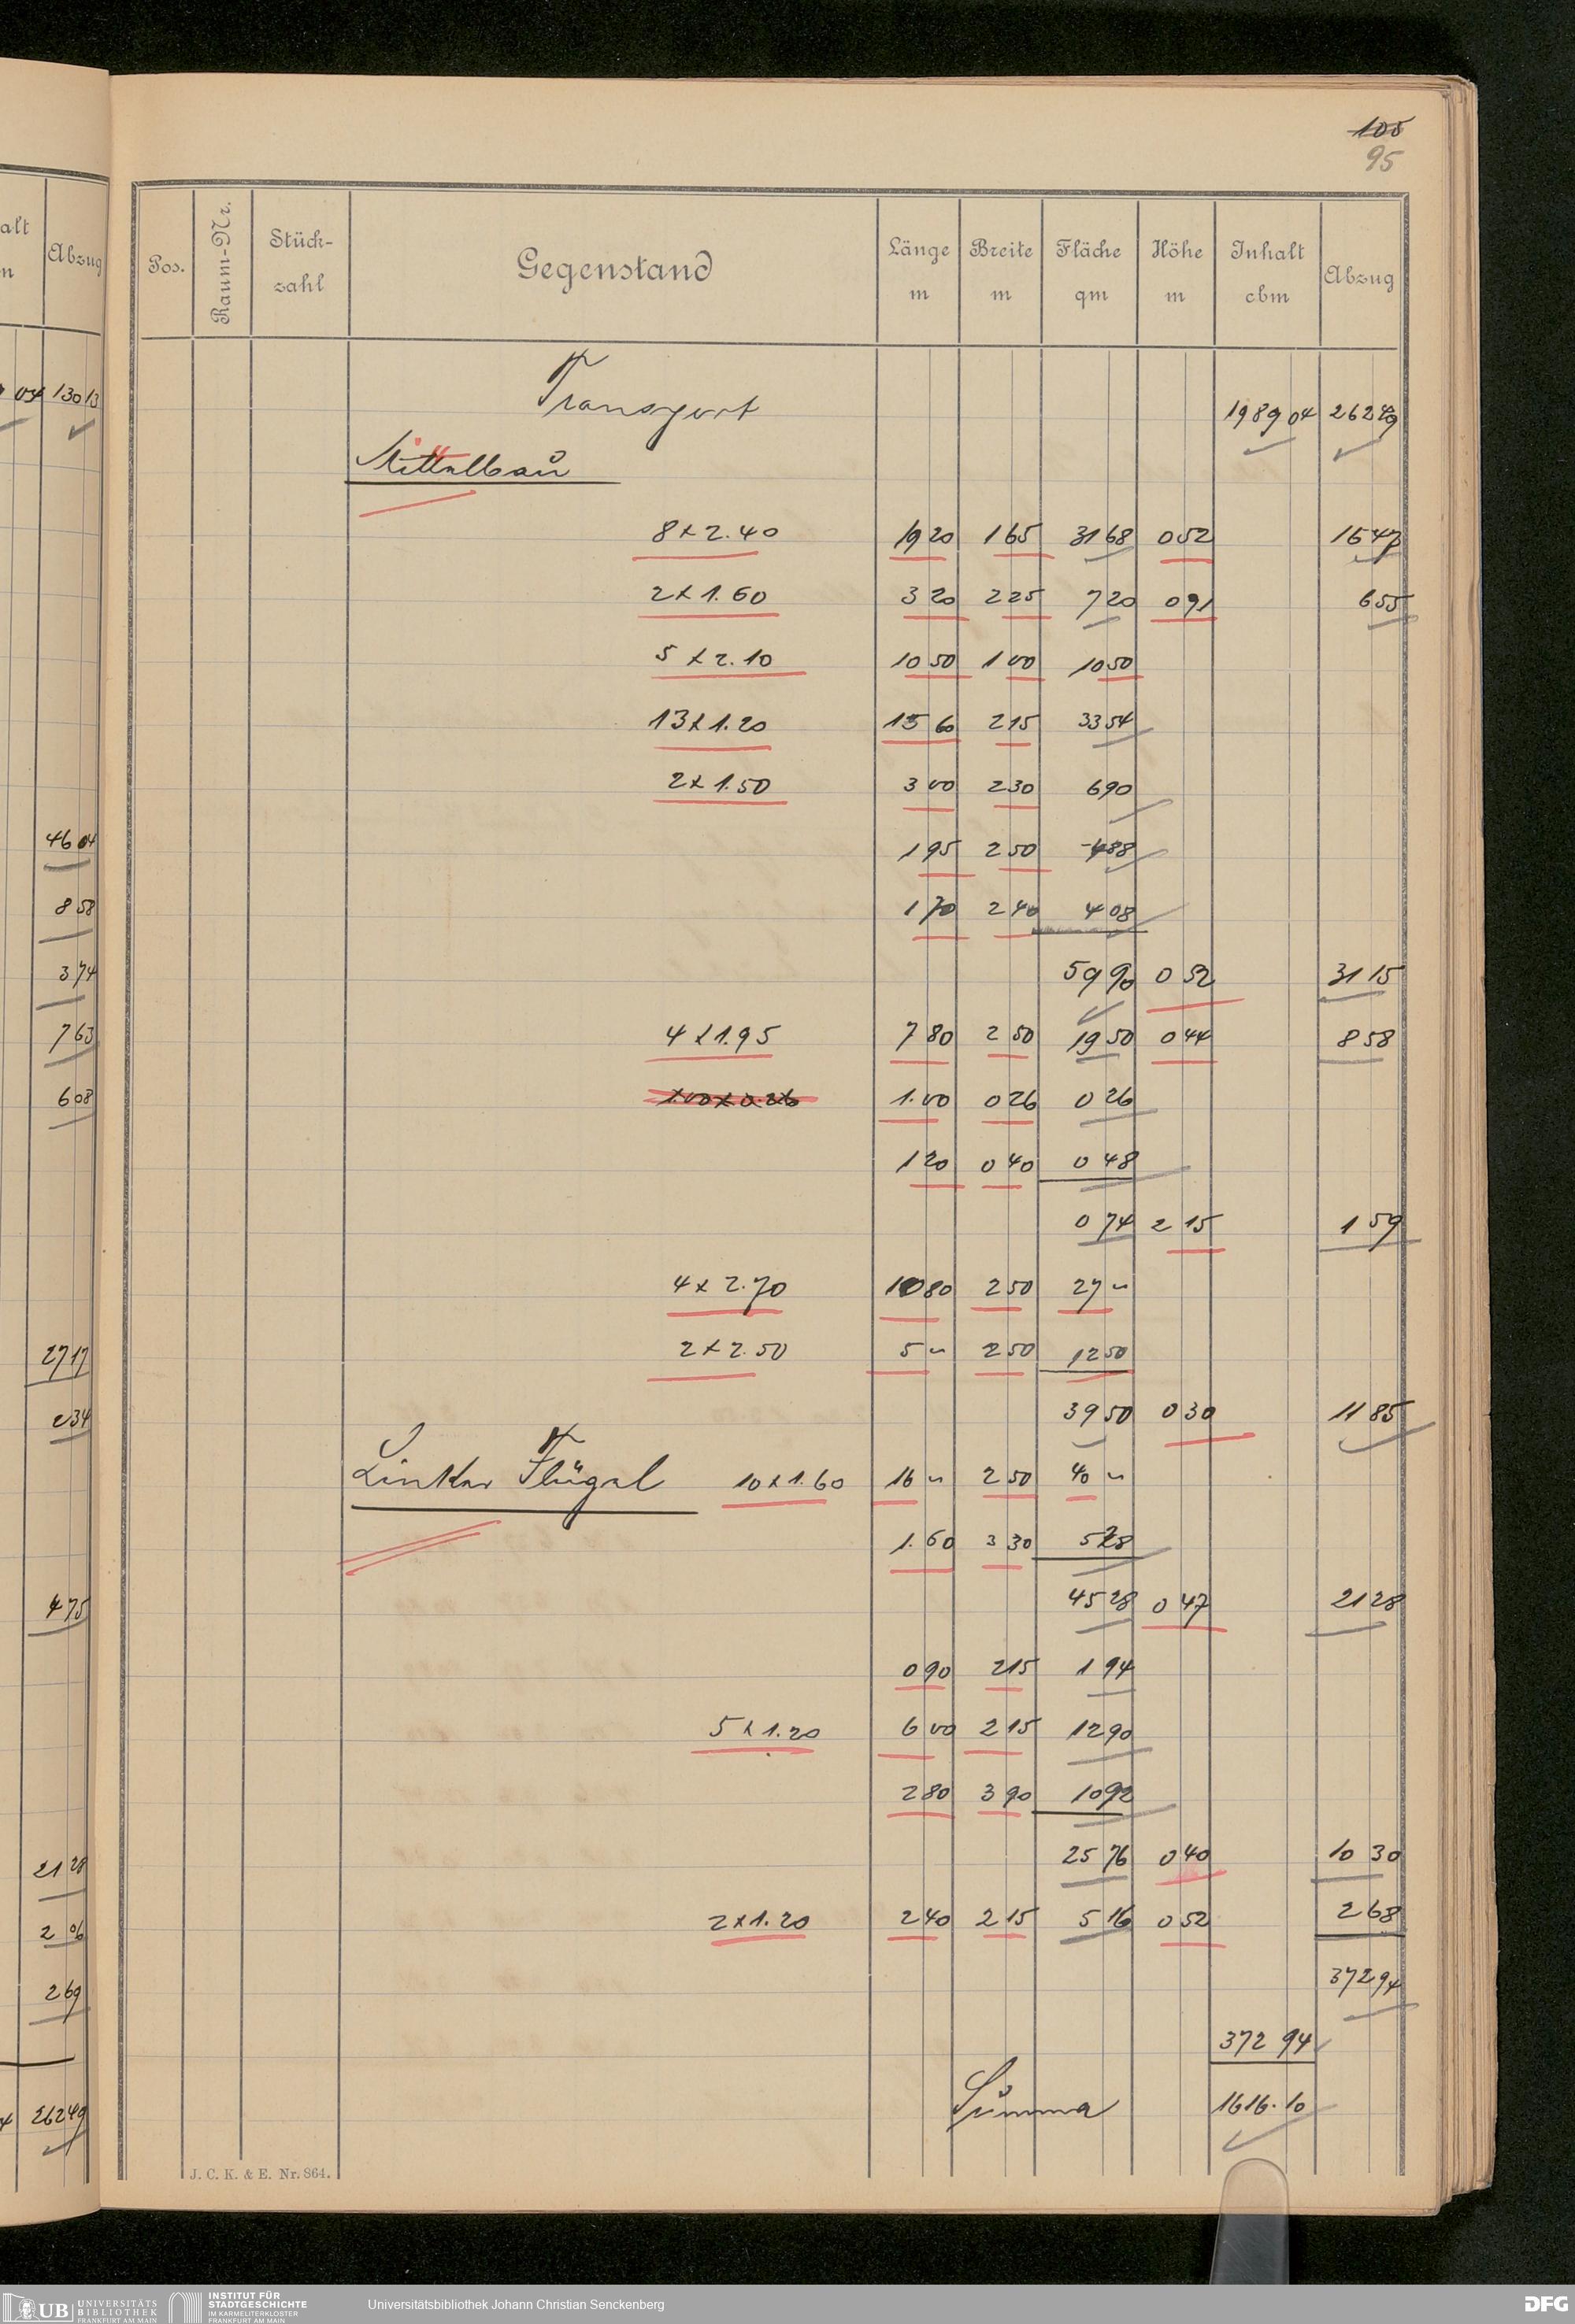 alt
m
Abzug
04 130 13
46 04
8 58
3 74
7 63
6 08
27 17
2 34
4 75
21 28
2 06
2 69
4 262 49
105
95
Pos. Raum-Nr. Stück-zahl Gegenstand Länge m Breite m Fläche qm Höhe m Inhalt cbm Abzug
Transport 1989 04 262 49
Mittelbau
8 x 2.40 19 20 1 65 31 68 0 52 16 47
2 x 1.60 3 20 2 25 7 20 0 91 6 55
5 x 2.10 10 50 1 00 10 50
13 x 1.20 15 60 2 15 33 54
2 x 1.50 3 00 2 30 6 90
1 95 2 50 4 88
1 70 2 40 4 08
59 90 0 52 31 15
4 x 1.95 7 80 2 50 19 50 0 44 8 58
1.00 x 0.26 1.00 0 26 0 26
1 20 0 40 0 48
0 74 2 15 1 59
4 x 2.70 10 80 2 50 27 ~
2 x 2.50 5 ~ 2 50 12 50
39 50 0 30 11 85
Linker Flügel 10 x 1.60 16 ~ 2 50 40 ~
1.60 3 30 5 28
45 28 0 47 21 28
0 90 2 15 1 94
5 x 1.20 6 00 2 15 12 90
2 80 3 90 10 92
25 76 0 40 10 30
2 x 1.20 2 40 2 15 5 16 0 52 2 68
372 94
372 94
Summa 1616.10
J. C. K. & E. Nr. 864.
UB UNIVERSITÄTS BIBLIOTHEK FRANKFURT AM MAIN
INSTITUT FÜR STADTGESCHICHTE IM KARMELITERKLOSTER FRANKFURT AM MAIN
Universitätsbibliothek Johann Christian Senckenberg
DFG